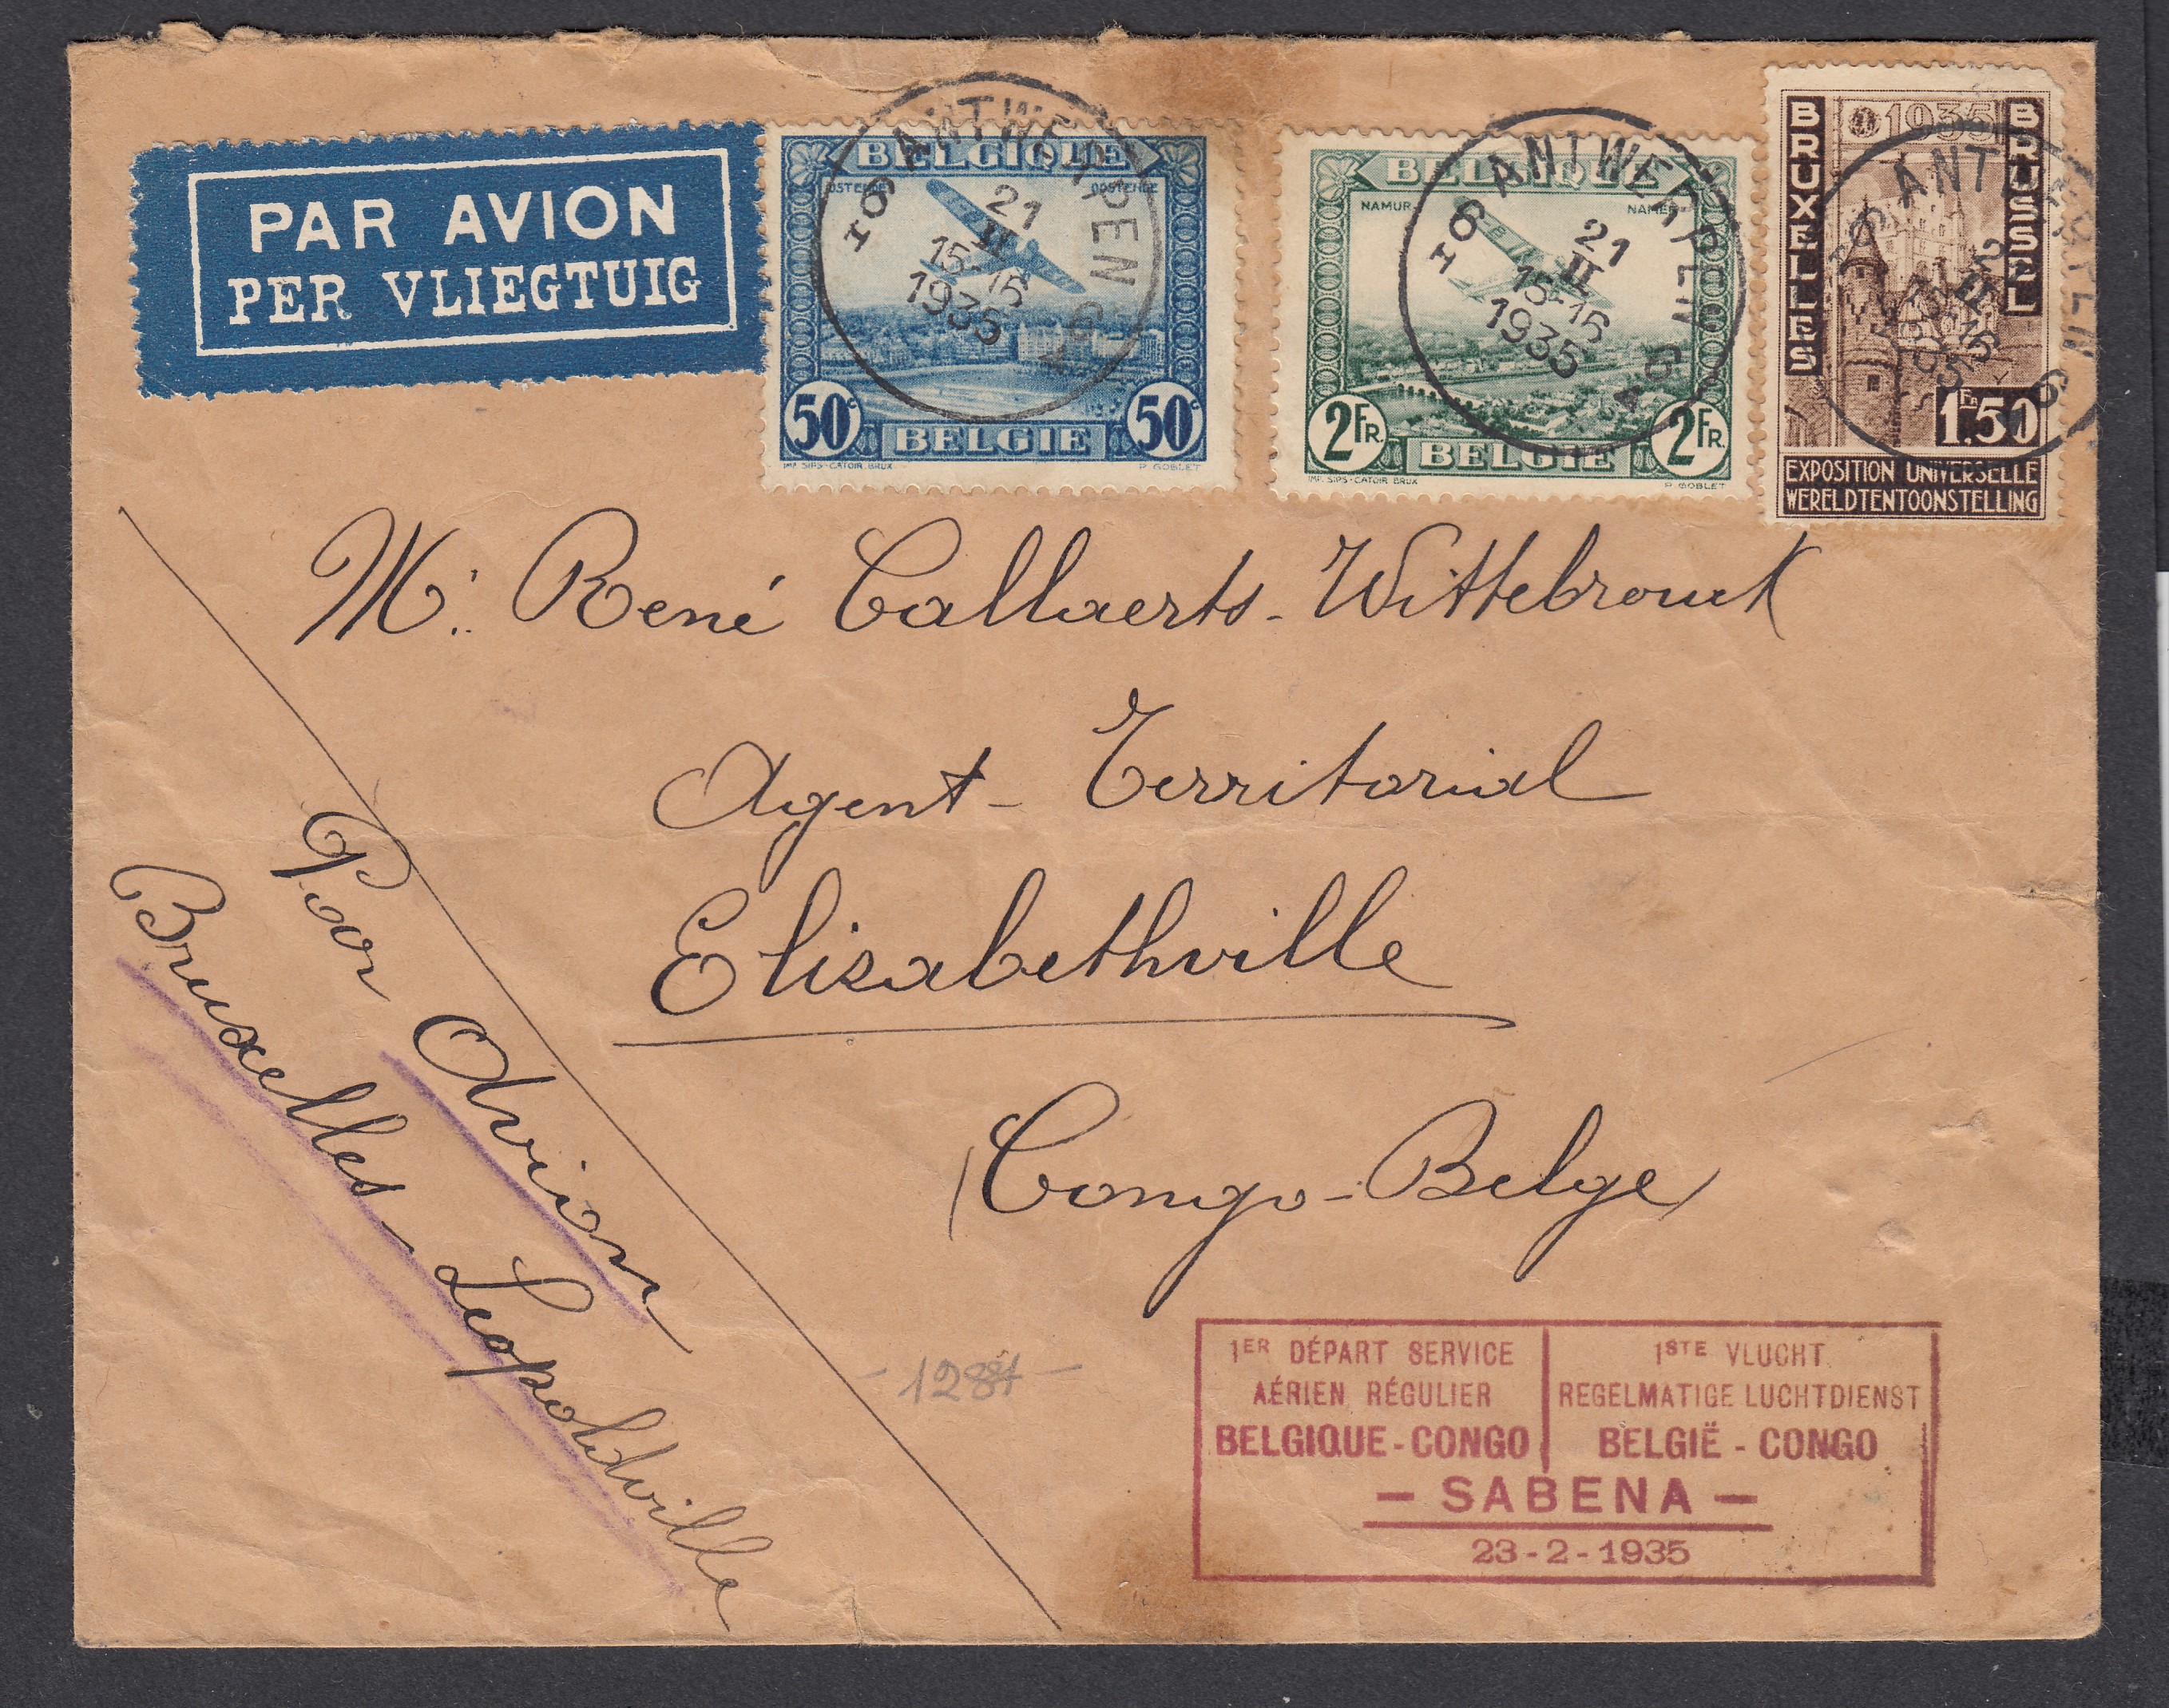 PAR AVION
PER VLIEGTUIG
BELGIQUE
OSTENDE OOSTENDE
50c 50c
BELGIE
IMP. SIPS-CATOIR. BRUX. P. GOBLET
ANTWERPEN 6
H6
21
II
15-16
1935
BELGIQUE
NAMUR NAMEN
2FR. 2FR.
BELGIE
IMP. SIPS-CATOIR BRUX P. GOBLET
ANTWERPEN 6
H6
21
II
15-16
1935
1935
BRUXELLES
BRUSSEL
1Fr.50
EXPOSITION UNIVERSELLE
WERELDTENTOONSTELLING
Mr. René Callaerts-Wittebrouck
Agent-Territorial
Elisabethville
(Congo-Belge)
Par Avion
Bruxelles-Leopoldville
1ER DÉPART SERVICE
AÉRIEN RÉGULIER
BELGIQUE-CONGO
1STE VLUCHT
REGELMATIGE LUCHTDIENST
BELGIË - CONGO
— SABENA —
23-2-1935